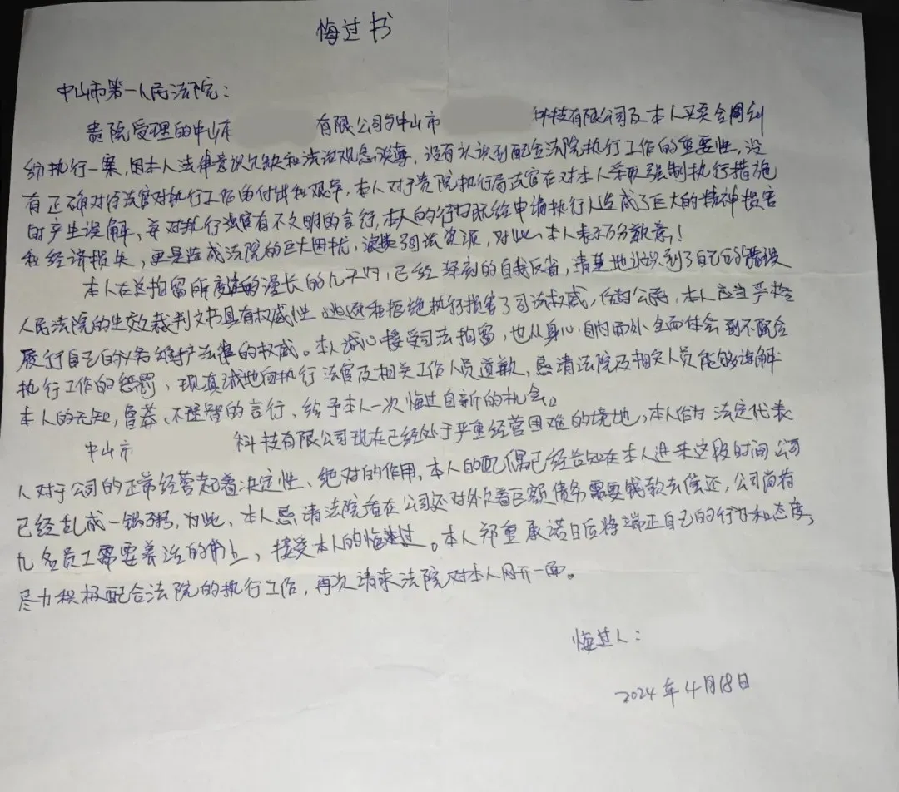 悔过书
中山市第一人民法院：
贵院受理的中山市 有限公司与中山市 科技有限公司及本人买卖合同纠
纷执行一案，因本人法律意识欠缺和法治观念淡薄，没有认识到配合法院执行工作的重要性，没
有正确对待法官对执行工作的付出和艰辛，本人对于贵院执行局法官在对本人采取强制执行措施
时产生误解，并对执行法官有不文明的言行，本人的行为既给申请执行人造成了巨大的精神损害
和经济损失，更是造成法院的巨大困扰，浪费了司法资源，对此，本人表示万分歉意！
本人在总拘留所度过的漫长的几天时，已经深刻的自我反省，清楚地认识到了自己的错误
人民法院的生效裁判文书具有权威性 逃避和拒绝执行损害了司法权威，作为公民，本人应当严格
履行自己的义务 维护法律的权威。本人诚心接受司法拘留，也从身心自内而外全面体会到不配合
执行工作的惩罚，现真诚地向执行法官及相关工作人员道歉，恳请法院及相关人员能够谅解
本人的无知，鲁莽、不理智的言行，给予本人一次悔过自新的机会。
中山市 科技有限公司现在已经处于严重经营困难的境地，本人作为法定代表
人对于公司的正常经营起着决定性、绝对的作用，本人的配偶已经告知在本人进来这段时间公司
已经乱成一锅粥，为此，本人恳请法院看在公司还对外欠着巨额债务需要钱款去偿还，公司尚有
几名员工需要养活的份上，接受本人的悔过。本人郑重承诺日后将端正自己的行为和态度，
尽力积极配合法院的执行工作，再次请求法院对本人网开一面。
悔过人：
2024年4月18日